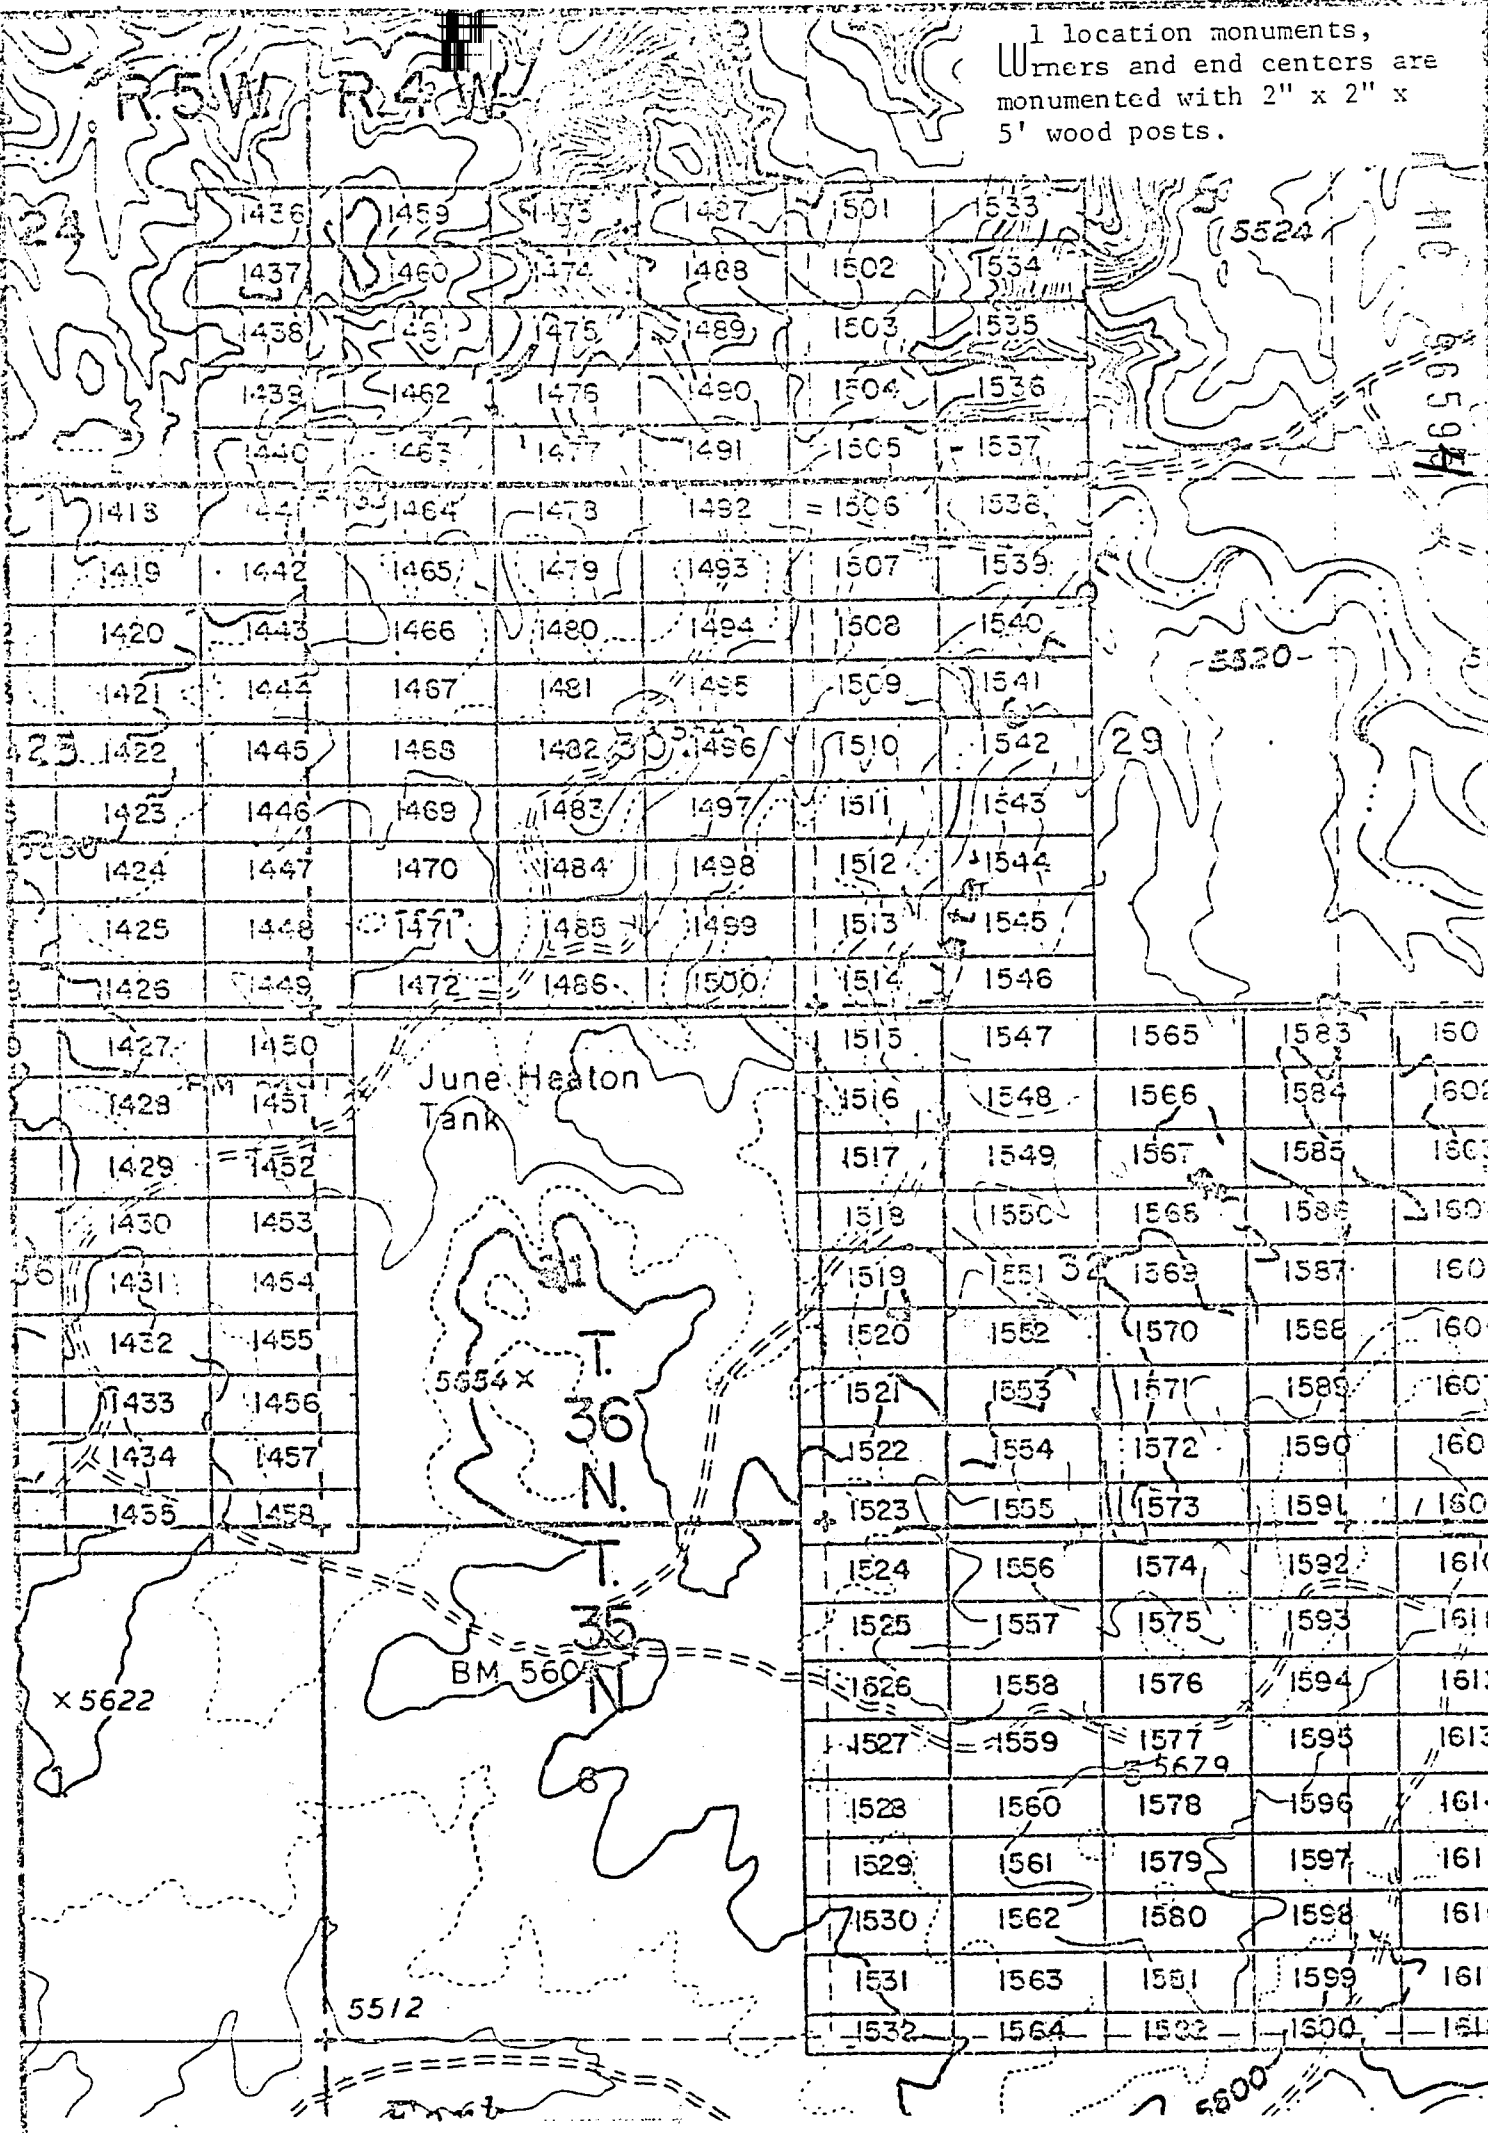 1 location monuments,
rners and end centers are
monumented with 2" x 2" x
5' wood posts.
R.5 W. R.4 W.
24 1436 1459 1473 1487 1501 1533 5524
1437 1460 1474 1488 1502 1534
1438 1461 1475 1489 1503 1535
1439 1462 1476 1490 1504 1536
1440 1463 1477 1491 1505 1537
1418 1441 1464 1478 1492 1506 1538
1419 1442 1465 1479 1493 1507 1539
1420 1443 1466 1480 1494 1508 1540
5520
1421 1444 1467 1481 1495 1509 1541
1422 1445 1468 1482 30 1496 1510 1542 29
1423 1446 1469 1483 1497 1511 1543
1424 1447 1470 1484 1498 1512 1544
1425 1448 1471 1485 1499 1513 1545
1426 1449 1472 1486 1500 1514 1546
1427 1450 1515 1547 1565 1583 160
June Heaton
Tank
1428 1451 1516 1548 1566 1584 1602
1429 1452 1517 1549 1567 1585
1430 1453 1518 1550 1568 1586 160
36 1431 1454 31 1519 1551 32 1569 1587 160
1432 1455 1520 1552 1570 1588 160
T.
36
N.
5654
1433 1456 1521 1553 1571 1589 1607
1434 1457 1522 1554 1572 1590 160
1435 1458 1523 1555 1573 1591 160
T.
35
N
1524 1556 1574 1592 1610
1525 1557 1575 1593 1611
BM 560
×5622
1526 1558 1576 1594 161
1527 1559 1577 1595 1613
5 5679
6
1528 1560 1578 1596 161
1529 1561 1579 1597 161
1530 1562 1580 1598 161
1531 1563 1581 1599 161
5512
1532 1564 1582 1600 161
5600